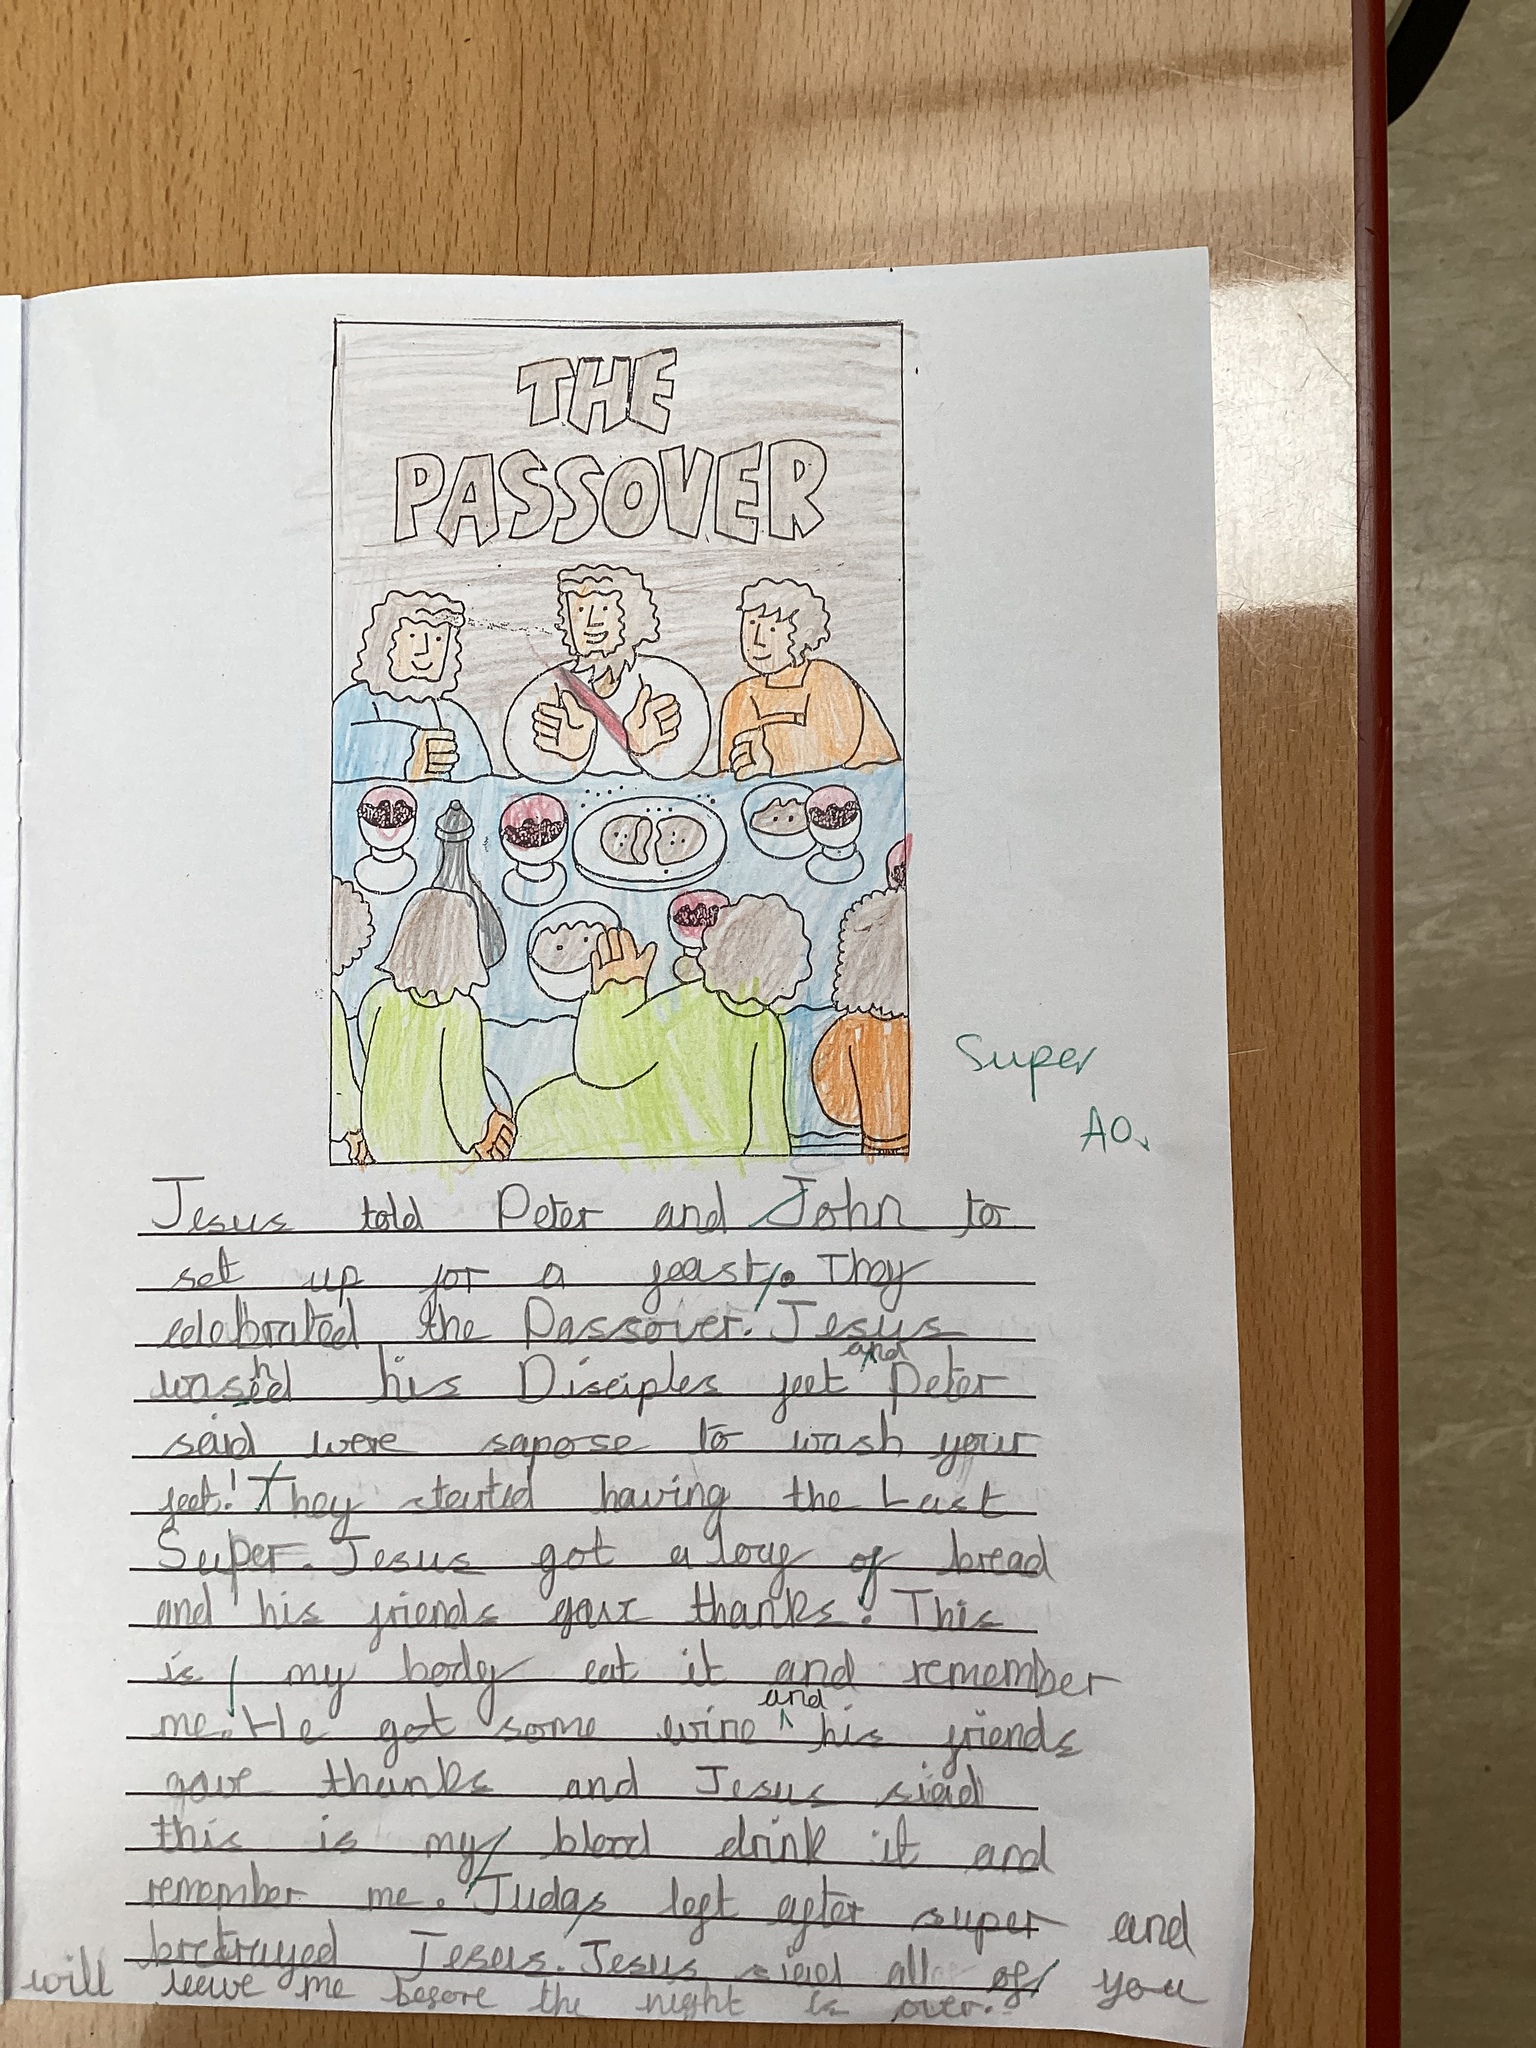 THE
PASSOVER
Super
AO.
Jesus told Peter and John to
set up for a feast. They
celebrated the Passover. Jesus
washed his Disciples feet and Peter
said were sapose to wash your
feet! They started having the Last
Super. Jesus got a loaf of bread
and his friends gave thanks. This
is my body eat it and remember
me. He got some wine and his friends
gave thanks and Jesus siad
this is my blood drink it and
remember me. Judas left after super and
betrayed Jesus. Jesus siad all of you
will leave me before the night is over.